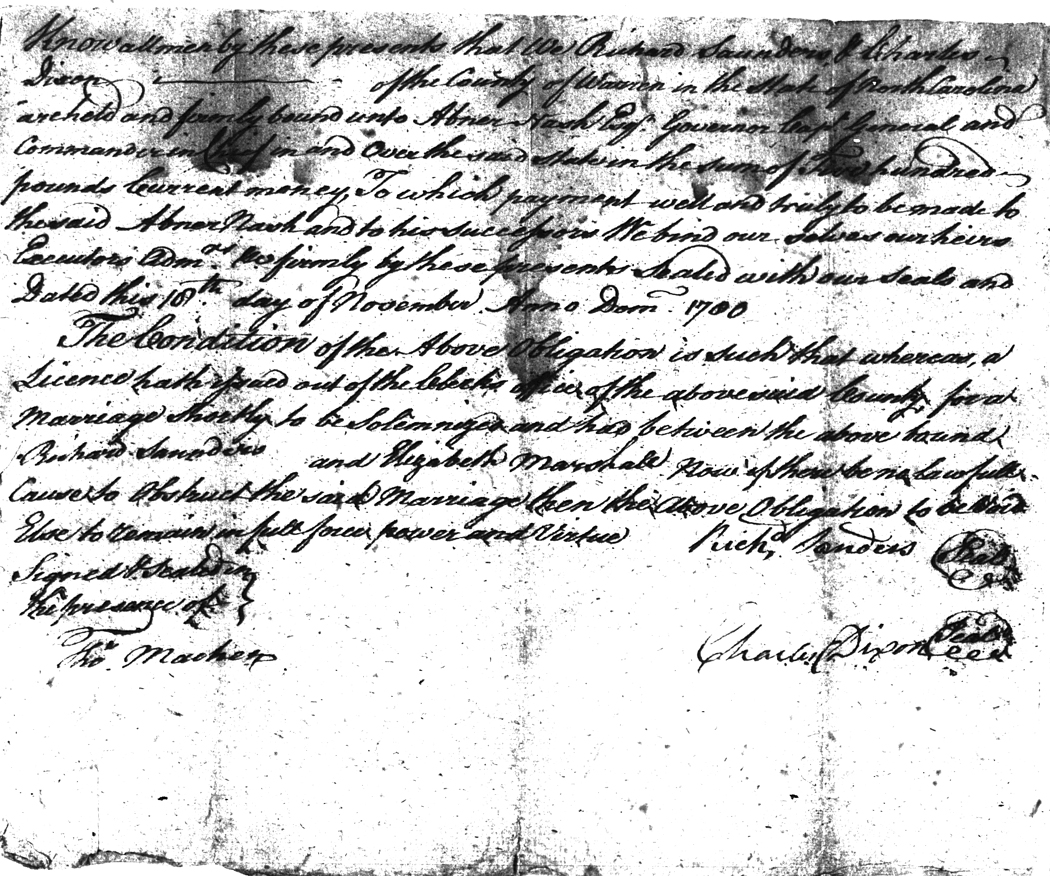 Know all men by these presents that We Richard Saunders & Charles
Dixon of the County of Warren in the State of North Carolina
are held and firmly bound unto Abner Nash Esqr. Governor Capt. General and
Commander in Chief in and Over the said State in the sum of Five hundred
pounds Current money, To which payment well and truly to be made to
the said Abner Nash and to his successors We bind our selves our heirs
Executors Admrs &c firmly by these presents Sealed with our Seals and
Dated this 18th day of November Anno Dom. 1780
The Condition of the Above Obligation is such that whereas, a
Licence hath issued out of the Clerks office of the abovesaid County for a
Marriage shortly to be Solemnized and had between the above bound
Richard Saunders and Elizabeth Marshall Now if there be no Lawfull
Cause to Obstruct the said Marriage then the Above Obligation to be Void
Else to remain in full force power and Virtue Richd. Sanders Seal
Signed & Sealed in
the presence of
Thos. Machen Charles Dixon Seal